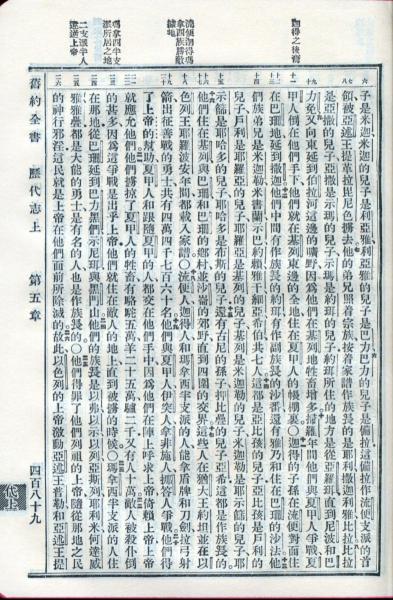 迦得之後裔
流便迦得瑪
拿四族勝敵
據地
瑪拿四半支
派所居之地
二支派半人
違逆上帝
子是米迦米迦的兒子是利亞雅利亞雅的兒子是巴力巴力的兒子是備拉這備拉作流便支派的首
領被亞述王提革拉毘尼色擄去他的弟兄照着宗族按着家譜作族長的是耶利撒迦利雅比拉比拉
是亞撒的兒子亞撒是示瑪的兒子示瑪是約珥的兒子約珥所住的地方是從亞羅珥直到尼波和巴
力免又向東延到伯拉河這邊的曠野因為他們在基列地牲畜增多掃羅年間他們與夏甲人爭戰夏
甲人倒在他們手下他們就在基列東邊的全地住在夏甲人的帳棚裏〇迦得的子孫在流便對面住
在巴珊地延到撒迦他們中間有作族長的約珥有作副族長的沙番還有雅乃和住在巴珊的沙法他
們族弟兄是米迦勒米書蘭示巴約賴雅干細亞希伯共七人這都是亞比孩的兒子亞比孩是戶利的
兒子戶利是耶羅亞的兒子耶羅亞是基列的兒子基列是米迦勒的兒子米迦勒是耶示篩的兒子耶
示篩是耶哈多的兒子耶哈多是布斯的兒子還有古尼的孫子押比疊的兒子亞希這都是作族長的
他們住在基列與巴珊和巴珊的鄉村並沙崙的郊野直到四圍的交界這些人在猶大王約坦並在以
色列王耶羅波安年間都載入家譜〇流便人迦得人和瑪拿西半支派的人能拿盾牌和刀劍拉弓射
箭出征善戰的勇士共有四萬四千七百六十名他們與夏甲人伊突人拿非施人挪答人爭戰他們得
了上帝的幫助夏甲人和跟隨夏甲的人都交在他們手中因為他們在陣上呼求上帝倚賴上帝上帝
就應允他們他們擄掠了夏甲人的牲畜有駱駝五萬羊二十五萬驢二千又有人十萬敵人被殺仆倒
的甚多因為這爭戰是出乎上帝他們就住在敵人的地上直到被擄的時候〇瑪拿西半支派的人住
在那地從巴珊延到巴力黑們示尼珥與黑門山他們的族長是以弗以示以列亞斯列耶利米何達威
雅雅疊都是大能的勇士是有名的人也是作族長的〇他們得罪了他們列祖的上帝隨從那地之民
的神行邪淫這民就是上帝在他們面前所除滅的故此以色列的上帝激動亞述王普勒和亞述王提
舊約全書 歷代志上 第五章 四百八十九
代上